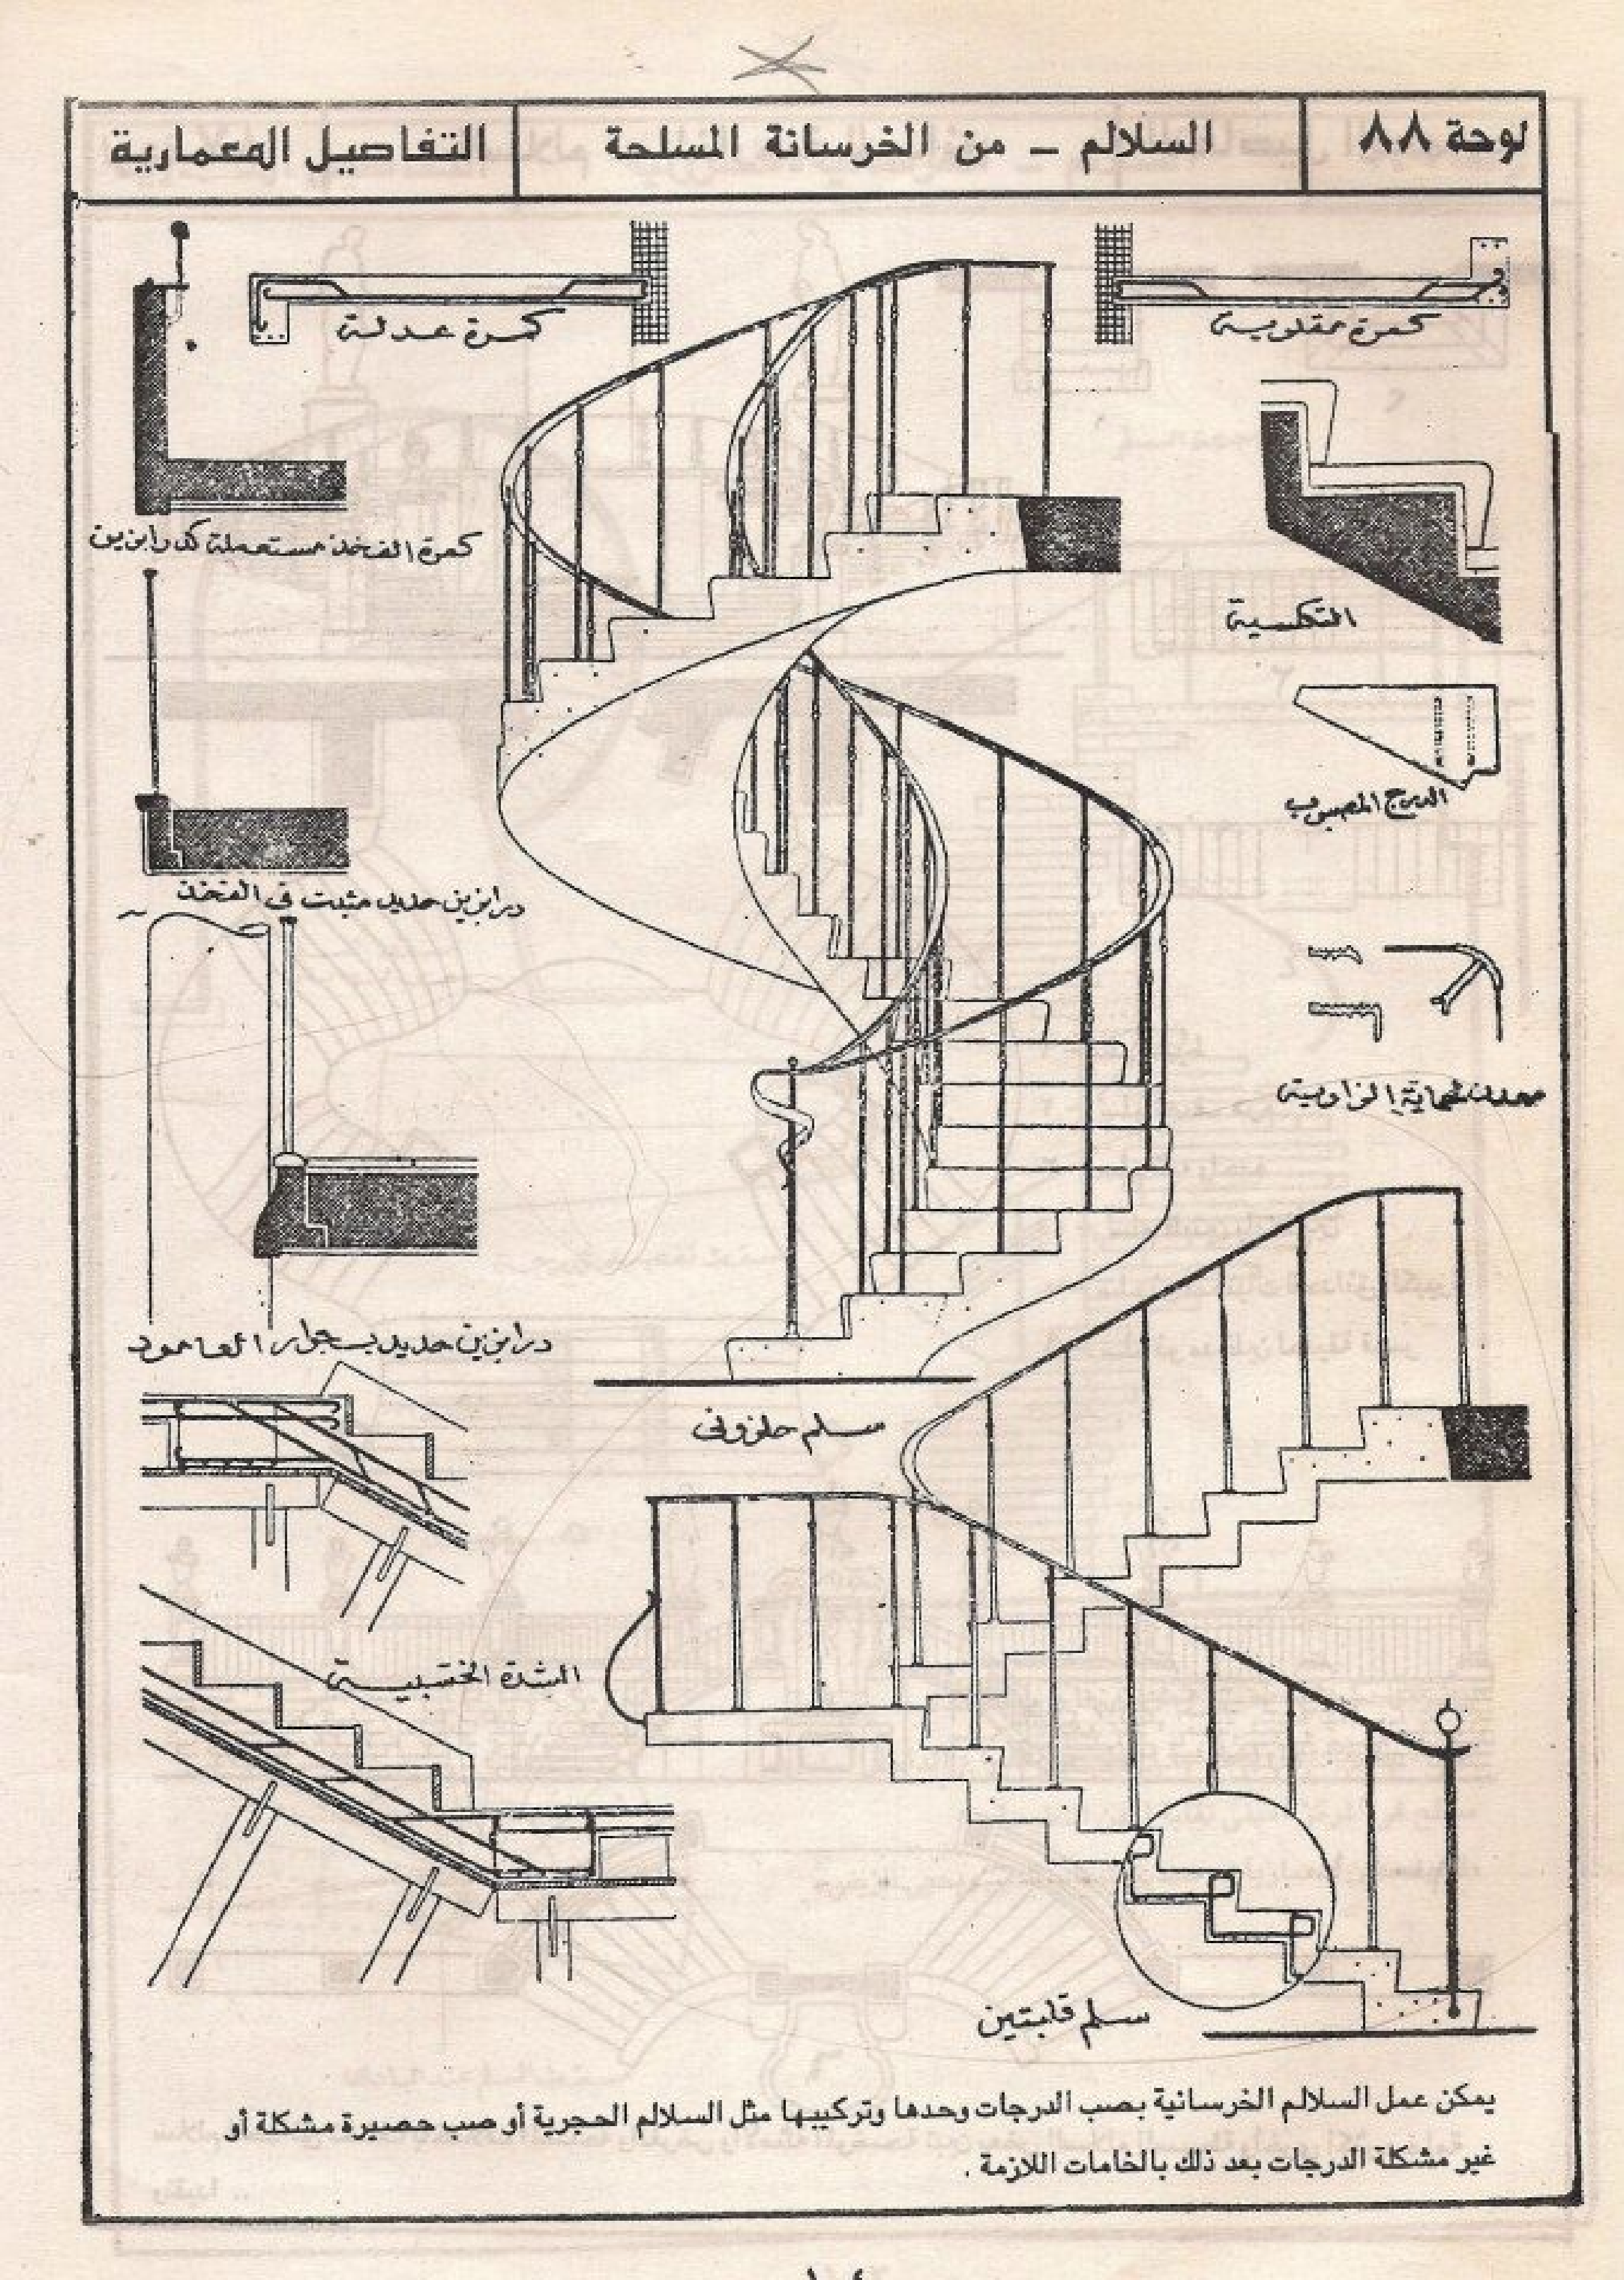 لوحة ٨٨
السلالم - من الخرسانة المسلحة
التفاصيل المعمارية
كمرة مقلوبة
كمرة عدلة
كمرة الفخذ مستعملة كدرابزين
التكسية
الدرج المصبوب
درابزين حديد مثبت فى الفخذ
معدن لحماية الزاوية
درابزين حديد بجوار العامود
سلم حلزونى
الشدة الخشبية
سلم قلبتين
يمكن عمل السلالم الخرسانية بصب الدرجات وحدها وتركيبها مثل السلالم الحجرية أو صب حصيرة مشكلة أو
غير مشكلة الدرجات بعد ذلك بالخامات اللازمة .